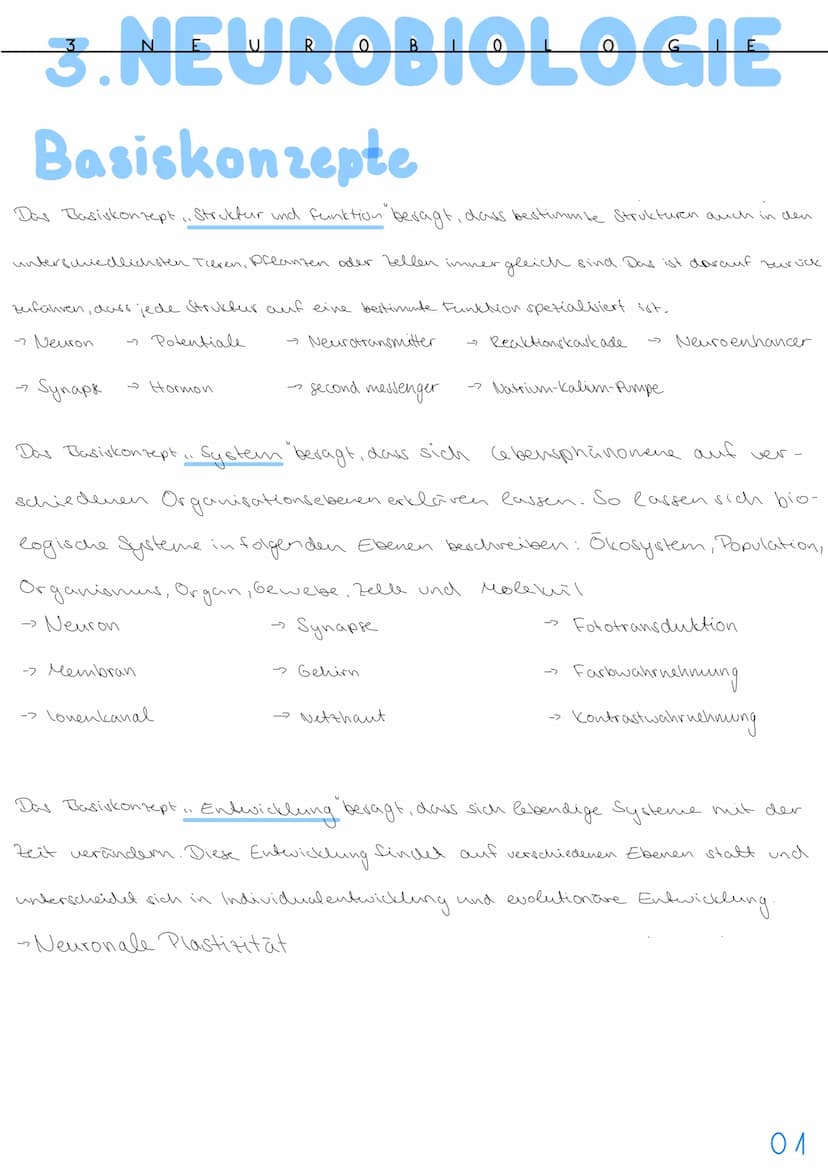 3 NEUROBIOLOGIE
3. NEUROBIOLOGIE
Basiskonzepte
Das Basiskonzept „Struktur und Funktion" besagt, dass bestimmte Strukturen auch in den
unterschiedlichsten Tieren, Pflanzen oder Zellen immer gleich sind. Das ist darauf zurück
zuführen, dass jede Struktur auf eine bestimmte Funktion spezialisiert ist.
→ Neuron → Potentiale → Neurotransmitter → Reaktionskaskade → Neuroenhancer
→ Synapse → Hormon → second messenger → Natrium-Kalium-Pumpe
Das Basiskonzept „System" besagt, dass sich Lebensphänomene auf ver-
schiedenen Organisationsebenen erklären lassen. So lassen sich bio-
logische Systeme in folgenden Ebenen beschreiben: Ökosystem, Population,
Organismus, Organ, Gewebe, Zelle und Molekül
→ Neuron → Synapse → Fototransduktion
→ Membran → Gehirn → Farbwahrnehmung
→ Ionenkanal → Netzhaut → Kontrastwahrnehmung
Das Basiskonzept „Entwicklung" besagt, dass sich lebendige Systeme mit der
Zeit verändern. Diese Entwicklung findet auf verschiedenen Ebenen statt und
unterscheidet sich in Individualentwicklung und evolutionäre Entwicklung.
→ Neuronale Plastizität
01